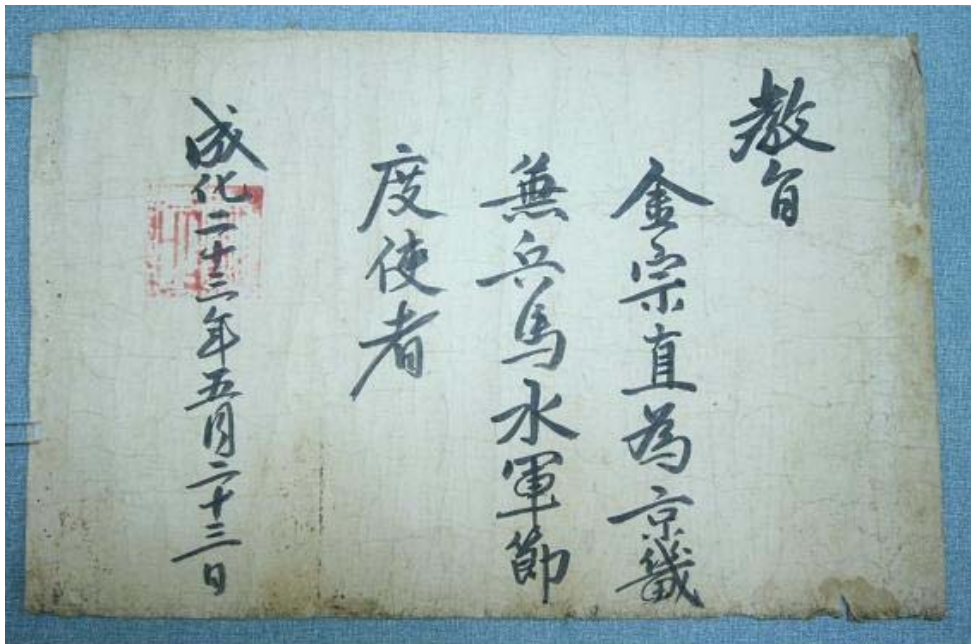 教旨
金宗直為京畿
兼兵馬水軍節
度使者
成化二十三年五月二十三日